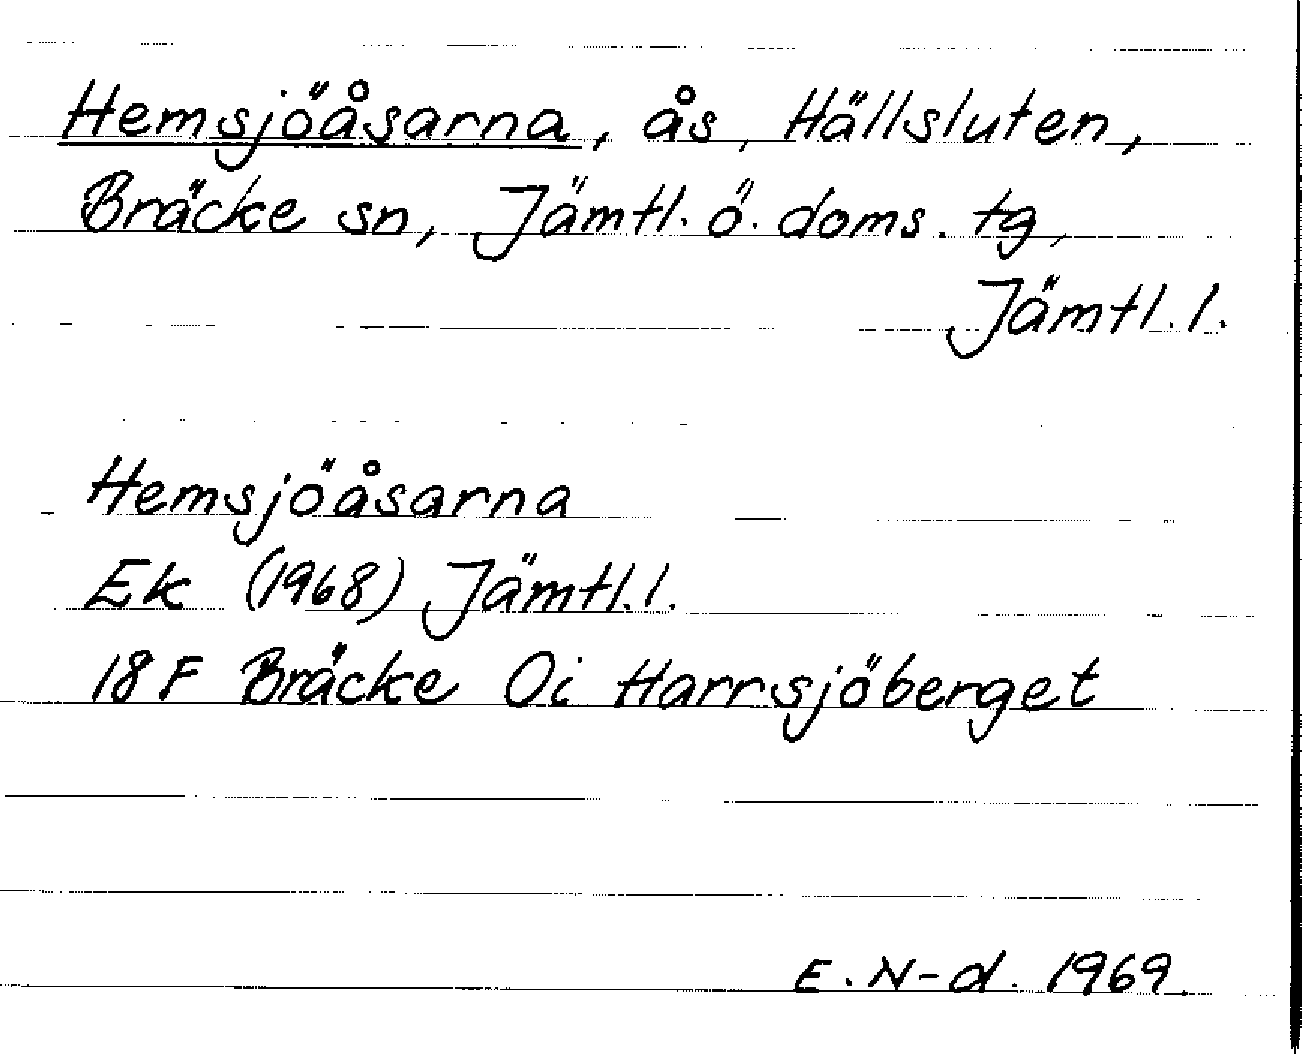 Hemsjöåsarna, ås, Hällsluten,
Bräcke sn, Jämtl. ö. doms. tg,
Jämtl. l.
Hemsjöåsarna
Ek (1968) Jämtl. l.
18 F Bräcke Oi Harrsjöberget
E. N-d. 1969.